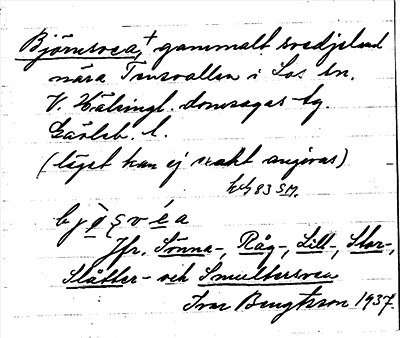 Björnsvea,† gammalt svedjeland
nära Tensvallen i Los sn.
V. Hälsingl. domsagas tg.
Gävleb. l.
(läget kan ej exakt angivas)
83 SM.
Jfr. Sönna-, Råg-, Lill-, Stor-,
Slåtter- och Smultersvea
Ivar Bengtsson 1937.